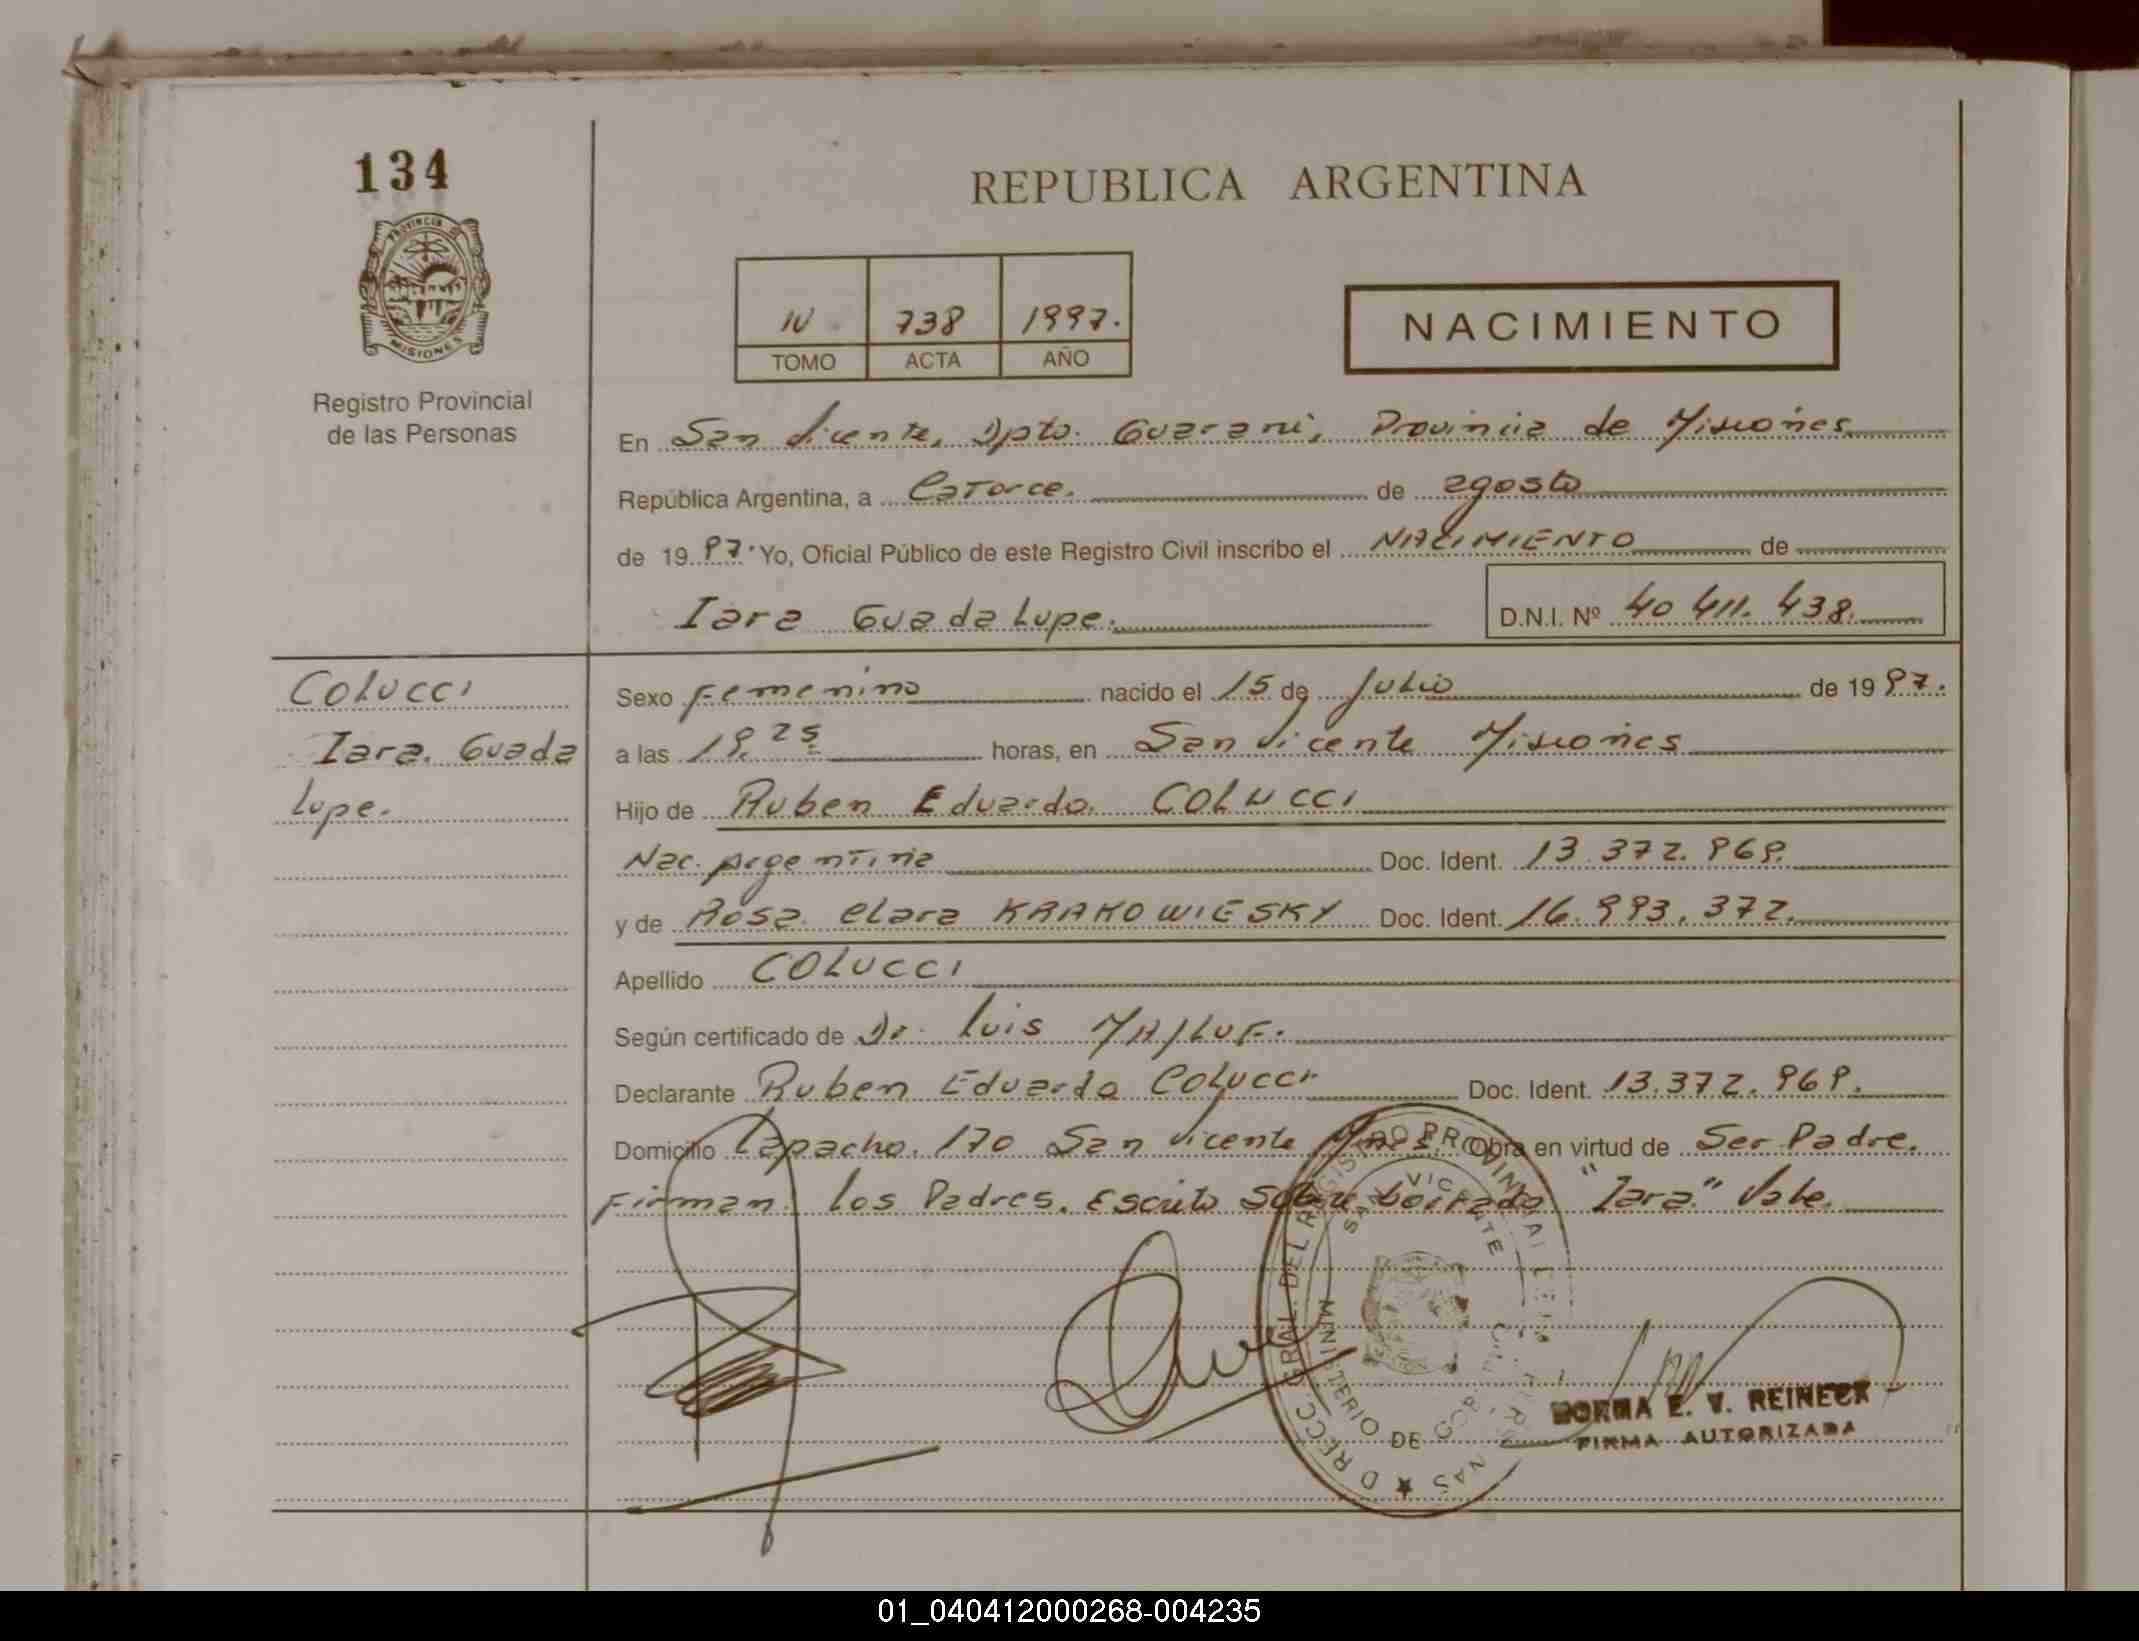 134
PROVINCIA DE
MISIONES
Registro Provincial
de las Personas
REPUBLICA ARGENTINA
IV 738 1997.
TOMO ACTA AÑO
NACIMIENTO
En San Vicente, Dpto. Guarani, Provincia de Misiones
República Argentina, a Catorce. de agosto
de 1997. Yo, Oficial Público de este Registro Civil inscribo el NACIMIENTO de
Iara Guadalupe. D.N.I. Nº 40 411. 438.
Colucci
Iara. Guada
lupe.
Sexo Femenino nacido el 15 de Julio de 1997.
a las 19.25 horas, en San Vicente Misiones
Hijo de Ruben Eduardo. COLUCCI
Nac. Argentina Doc. Ident. 13.372.969.
y de Rosa Clara KRAKOWIESKY Doc. Ident. 16.993.372.
Apellido COLUCCI
Según certificado de Dr. Luis MAJLUF.
Declarante Ruben Eduardo Colucci Doc. Ident. 13.372.969.
Domicilio Lapacho. 170 San Vicente Mnes. Obra en virtud de Ser Padre.
Firman los Padres. Escrito Sobre borrado "Iara" Vale.
DIRECC. GRAL. DEL REGISTRO PROVINCIAL DE LAS PERSONAS
SAN VICENTE
MINISTERIO DE GOB.
NORMA E. V. REINECK
FIRMA AUTORIZADA
01_040412000268-004235